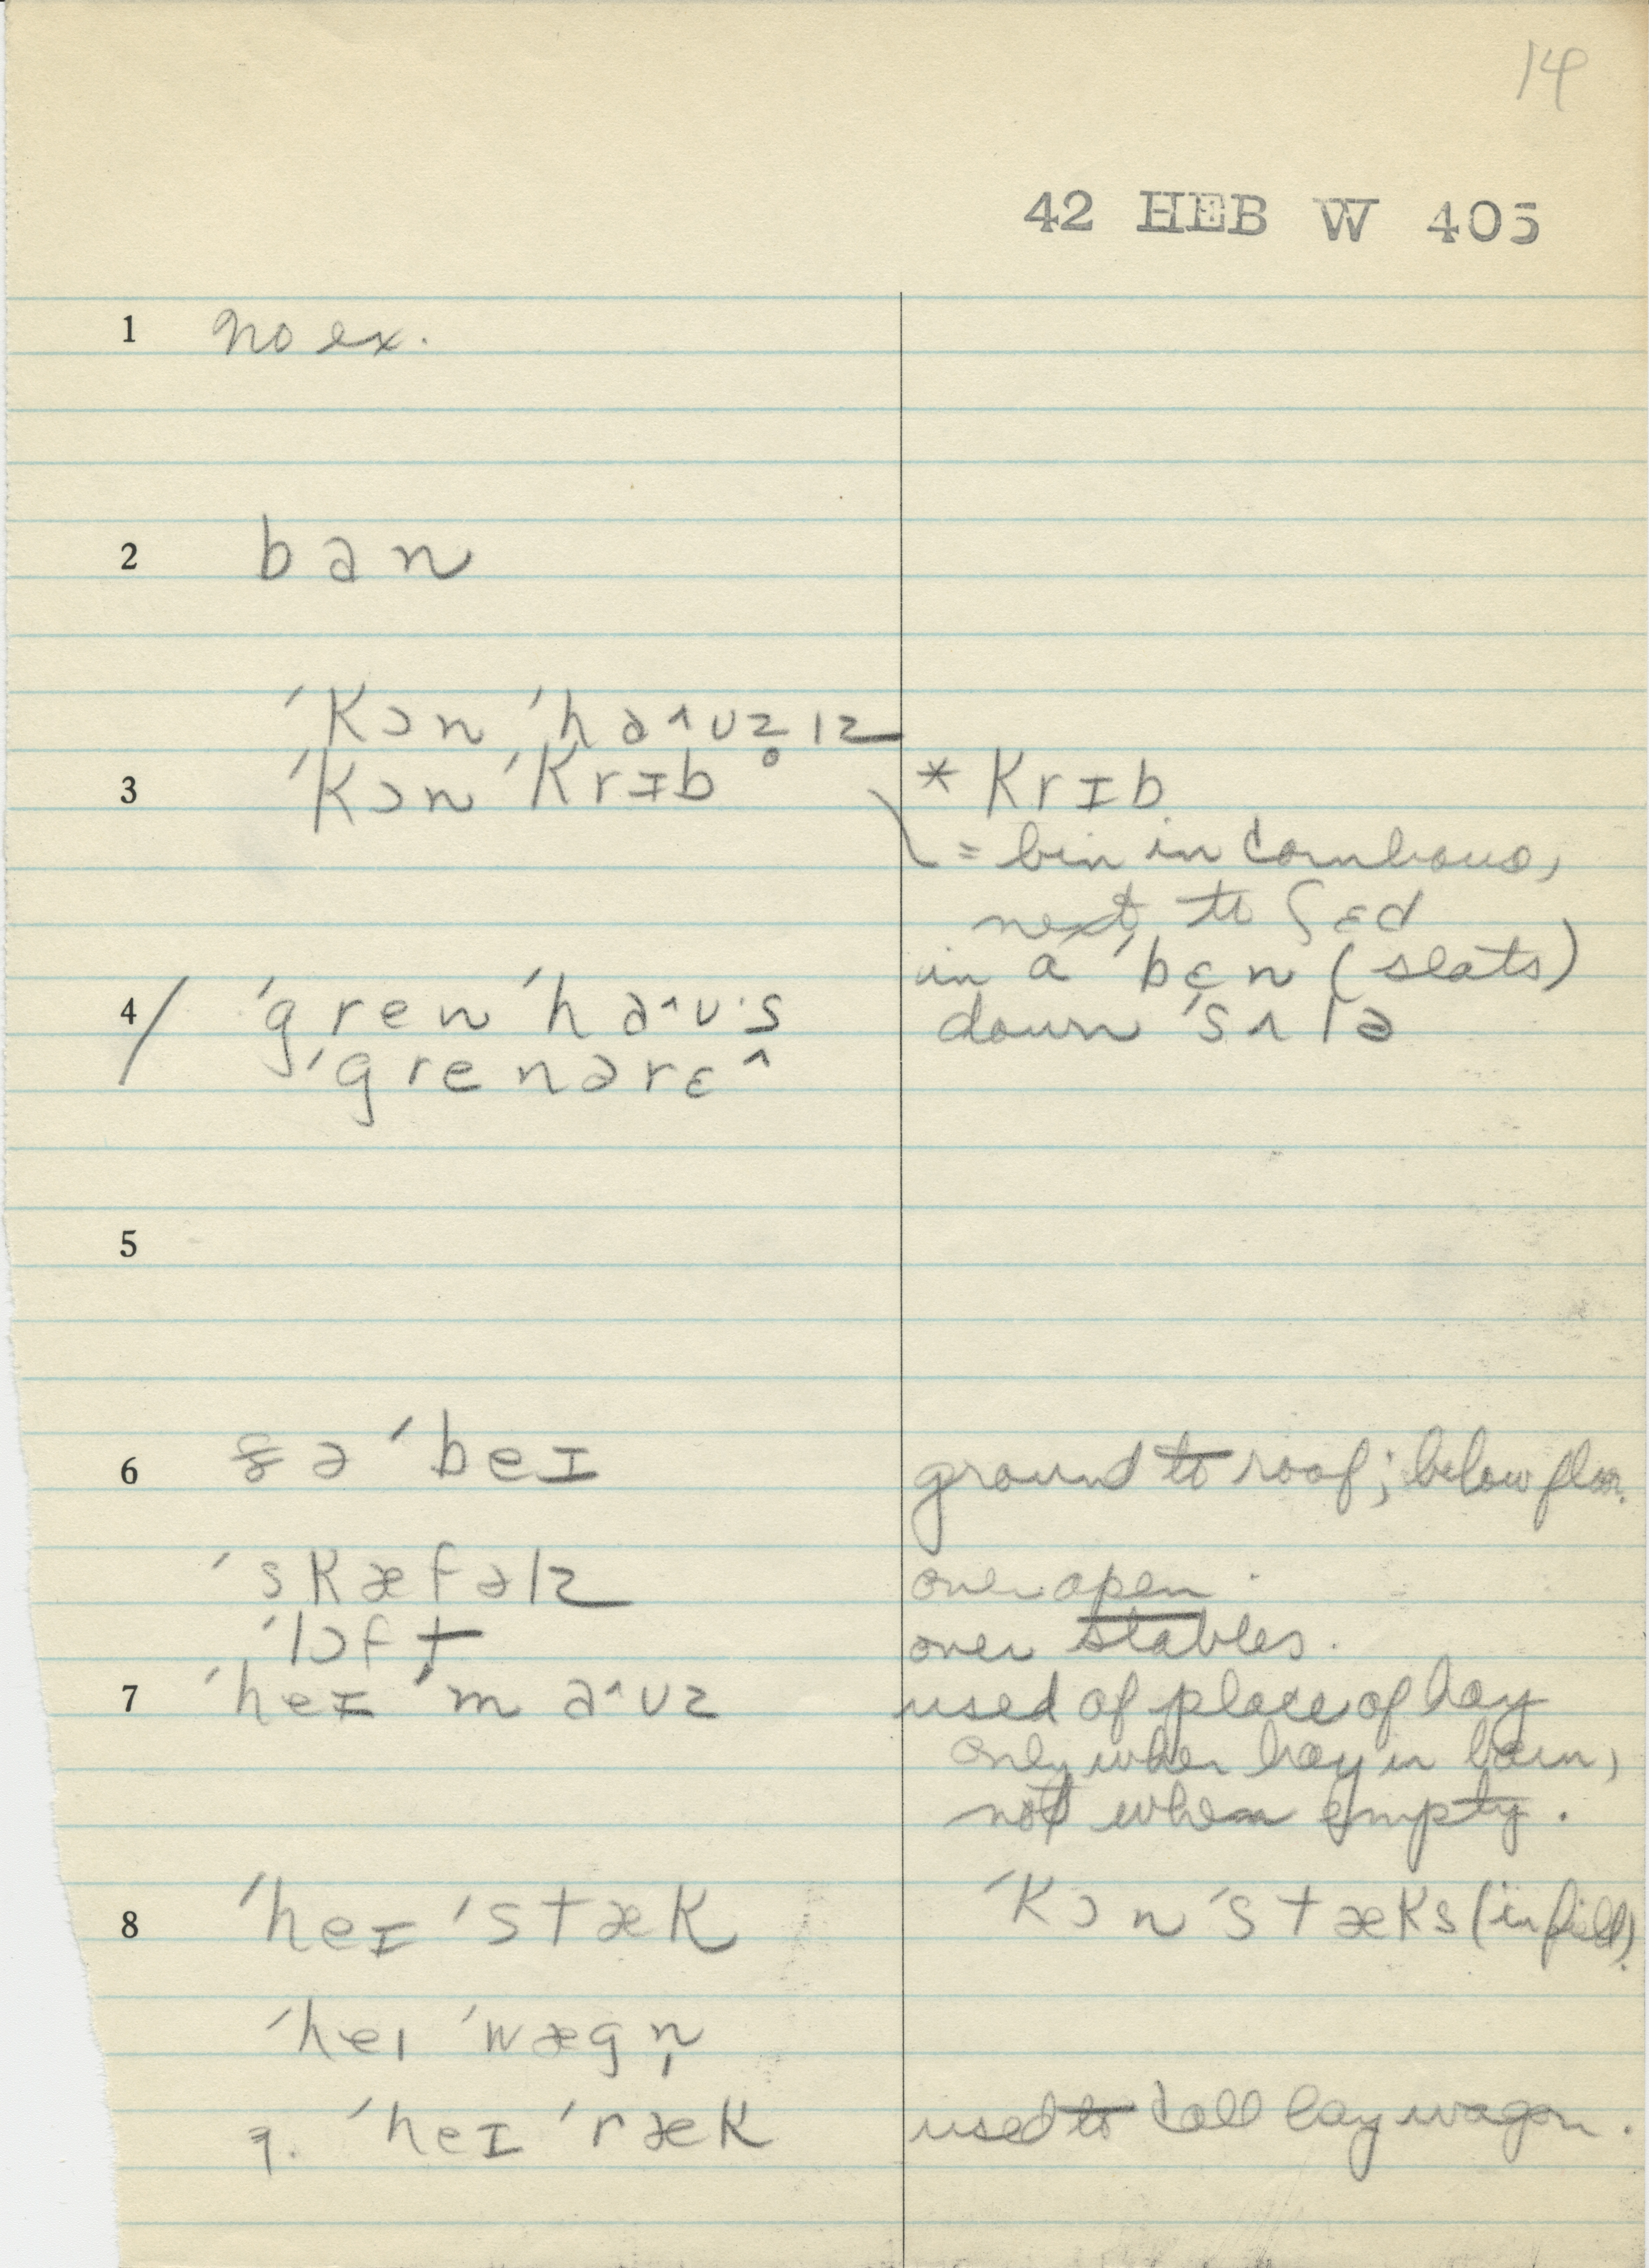 14
42 HEB W 405
1 no ex.
2 ban
ˈkɔn ˈha^ʊz̥ɪz
3 ˈkɔn ˈkrɪb * krɪb
= bin in cornhouse,
next to ʃɛd
in a ˈbɛn (slats)
4 / ˈgren ˈha^ʊ·s down ˈsʌlə
ˈgrenərɛ^
5
6 ə ˈbeɪ ground to roof; below floor.
ˈskæfəlz over open.
ˈlɔft over stables.
7 ˈheɪ ˈma^ʊz used of place of hay
only when hay in barn,
not when empty.
8 ˈheɪ ˈstæk ˈkɔn ˈstæks (in field).
ˈheɪ ˈwægn̩
ˈheɪ ˈræk used to call hay wagon.